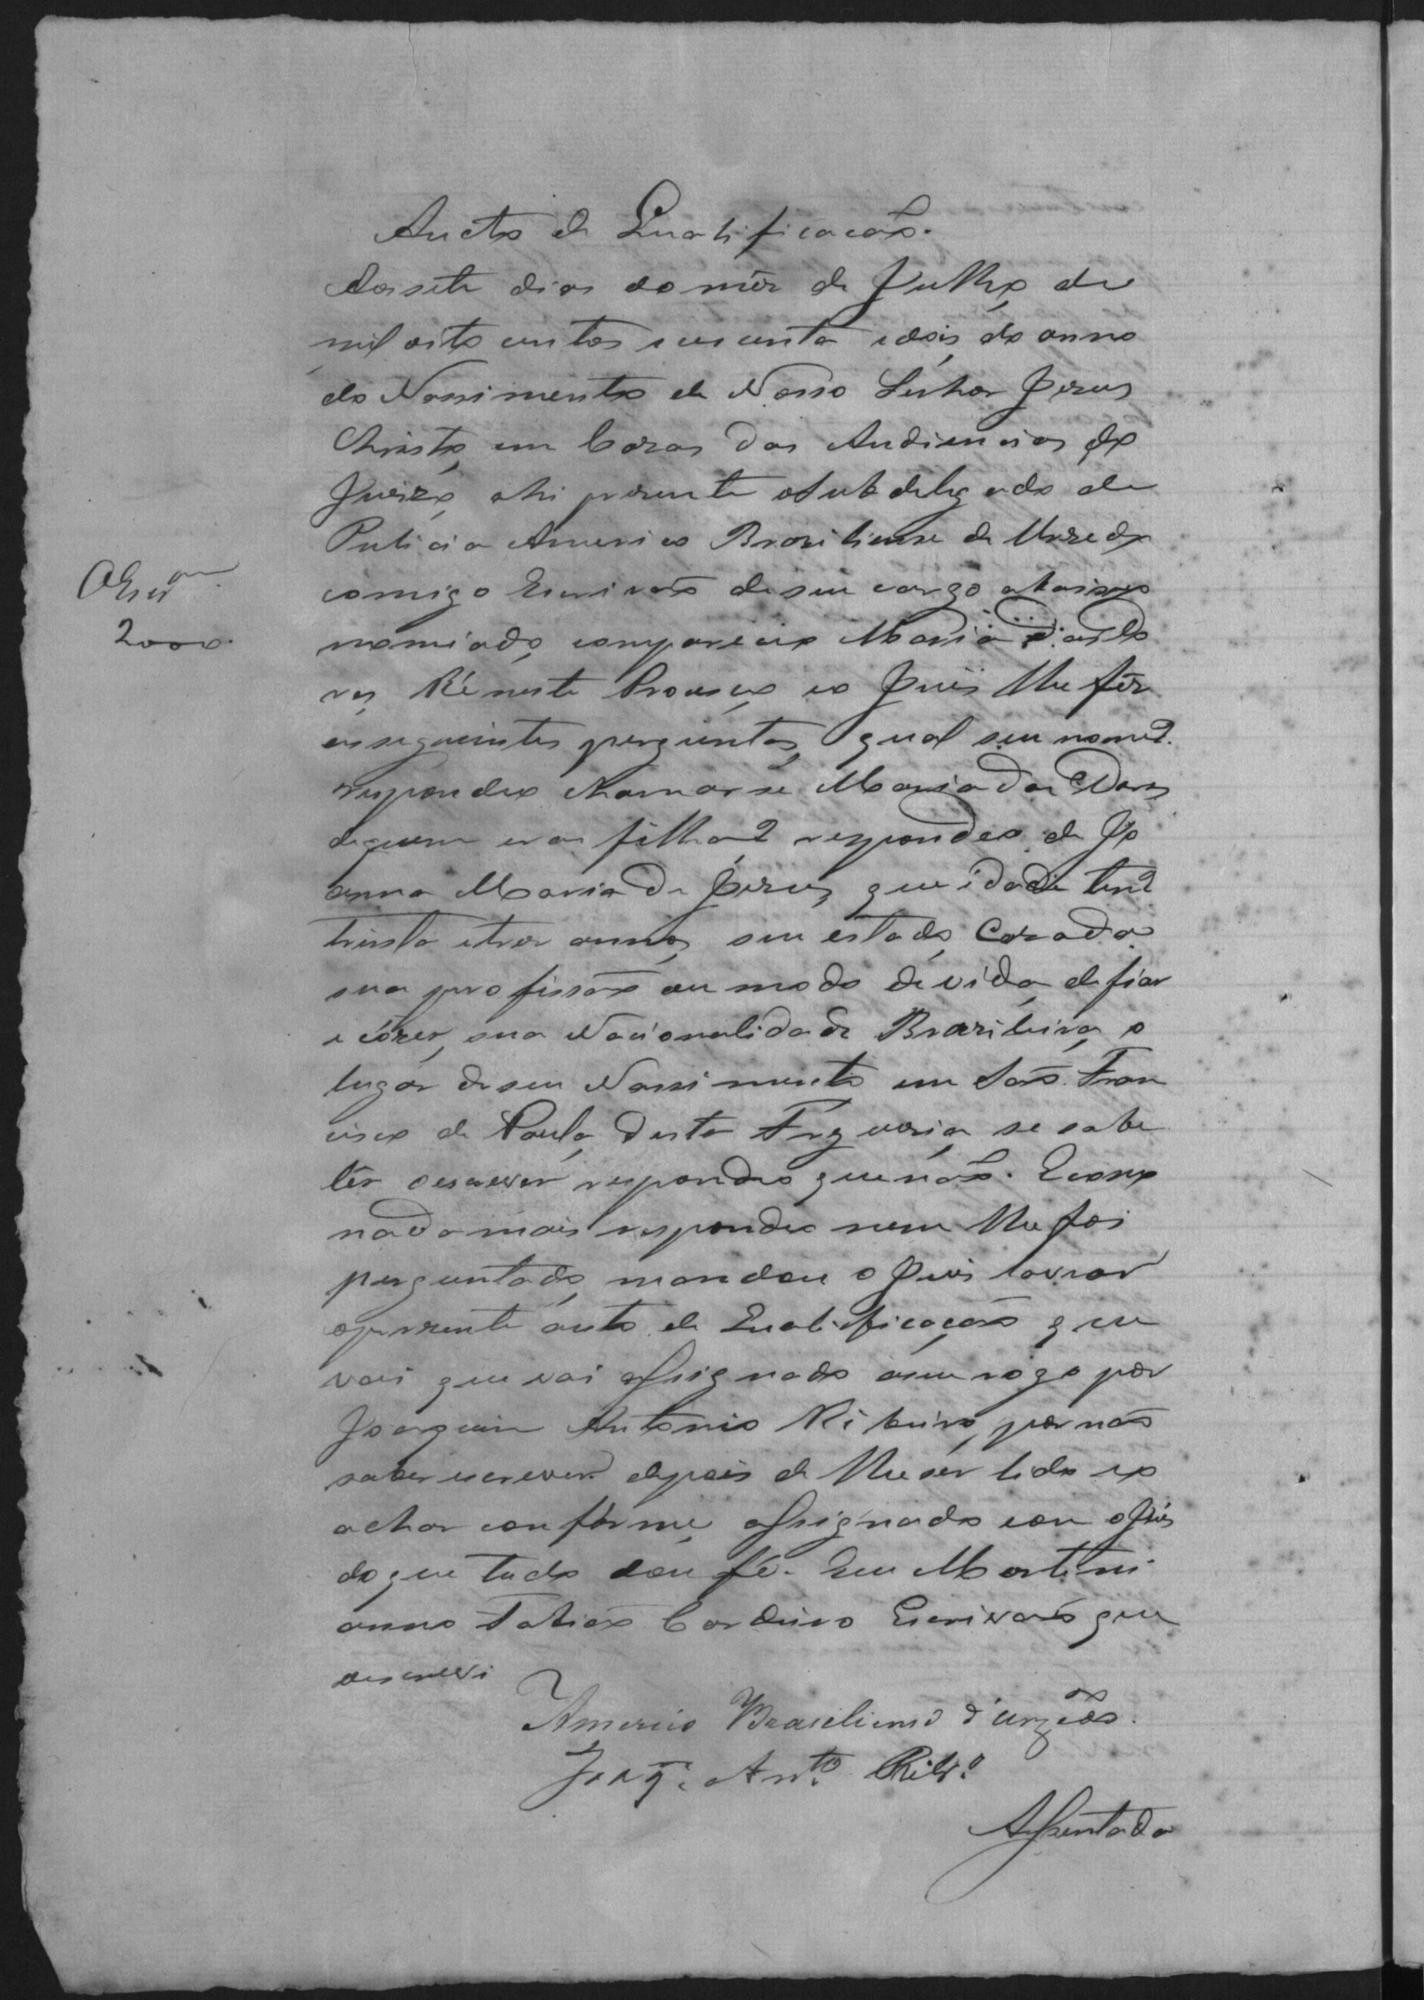 Aucto de Qualificacaõ.
Aos sete dias do mês de Julho de
mil oito centos secenta edois, do anno
do Nassimento de Nosso Senhor Jesus
Christo, em Cazas das Audiencias do
Juizo, ahi prezente oSubdelegado de
Pulicia Americo Braziliense de
comigo Escrivaõ deseu cargo abaixo
nomiado, compareceo Maria das Do
res Ré neste Processo, eo Juis lhe fêz
asseguintes perguntas, qual seu nome?
respondeo chamarse Maria das Dores
dequem era filha? respondeo de Jo
anna Maria de Jezus, que idade tem?
trinta etres annos, seu estado, Cazada
sua profissaõ ou modo de vida, defiar
e cozer, sua Nacionalidade Brazileira, o
lugar deseu Nassimento em Saõ Fran
cisco de Paula, desta Freguezia, se sabe
lêr oescrever, respondeo quenaõ. Ecomo
nada mais respondeo nem lhe foi
perguntado, mandou o Juis lavrar
oprezente auto de Qualificaçaõ que
vai que vai assignado aseu rogo por
Joaquim Antonio Ribeiro, por naõ
saber escrever depois de lhe sêr lido eo
achar conforme, assignado com oJuis
doque tudo dou fé. Eu Martini
anno Tobias Cardozo Escrivaõ que
oescrevi
Americo Brasiliense
Joaqᵐ. Antᵒ. Ribrᵒ.
Assentada
2000.